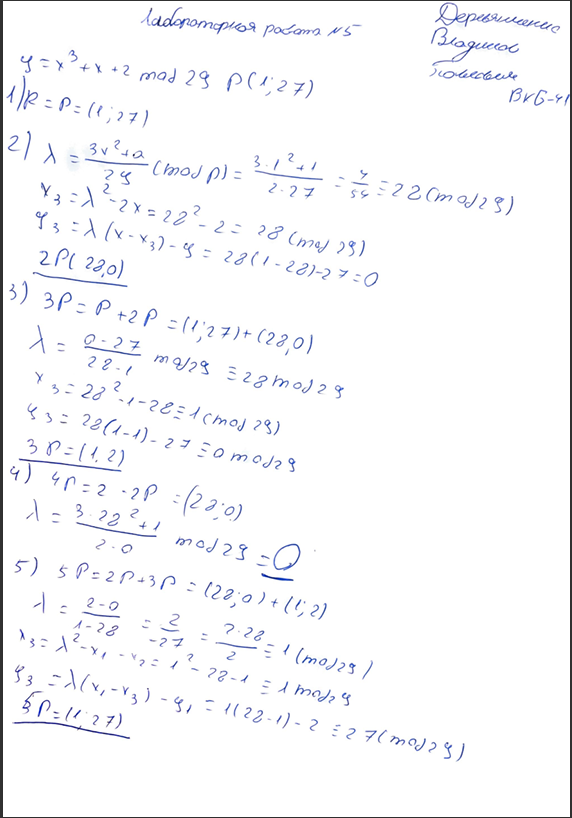 Лабораторная работа №5
Владислав
ВкБ-41
y = x³ + x + 2 mod 29 P(1; 27)
1) R = P = (1; 27)
2) λ = (3x² + a)/(2y) (mod p) = (3·1² + 1)/(2·27) = 4/54 ≡ 28 (mod 29)
x₃ = λ² - 2x = 28² - 2 = 28 (mod 29)
y₃ = λ(x - x₃) - y = 28(1 - 28) - 27 = 0
2P(28,0)
3) 3P = P + 2P = (1; 27) + (28,0)
λ = (0 - 27)/(28 - 1) mod 29 ≡ 28 mod 29
x₃ = 28² - 1 - 28 ≡ 1 (mod 29)
y₃ = 28(1 - 1) - 27 ≡ 0 mod 29
3P = (1, 2)
4) 4P = 2 · 2P = (28; 0)
λ = (3·28² + 1)/(2·0) mod 29 = O
5) 5P = 2P + 3P = (28; 0) + (1; 2)
λ = (2 - 0)/(1 - 28) = 2/(-27) = (2·28)/2 ≡ 1 (mod 29)
x₃ = λ² - x₁ - x₂ = 1² - 28 - 1 ≡ 1 mod 29
y₃ = λ(x₁ - x₃) - y₁ = 1(28 - 1) - 2 ≡ 27 (mod 29)
5P = (1; 27)